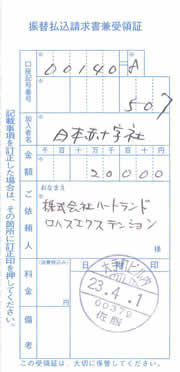 振替払込請求書兼受領証
口座記号番号
00140 8
507
加入者名
日本赤十字社
金額
千 百 十 万 千 百 十 円
20000
ご依頼人
おなまえ
株式会社ハートランド
ロハスエクステンション
様
料金
(消費税込み)
円
日附印
23.4.1
00379
備考
記載事項を訂正した場合は、その箇所に訂正印を押してください。
この受領証は、大切に保管してください。